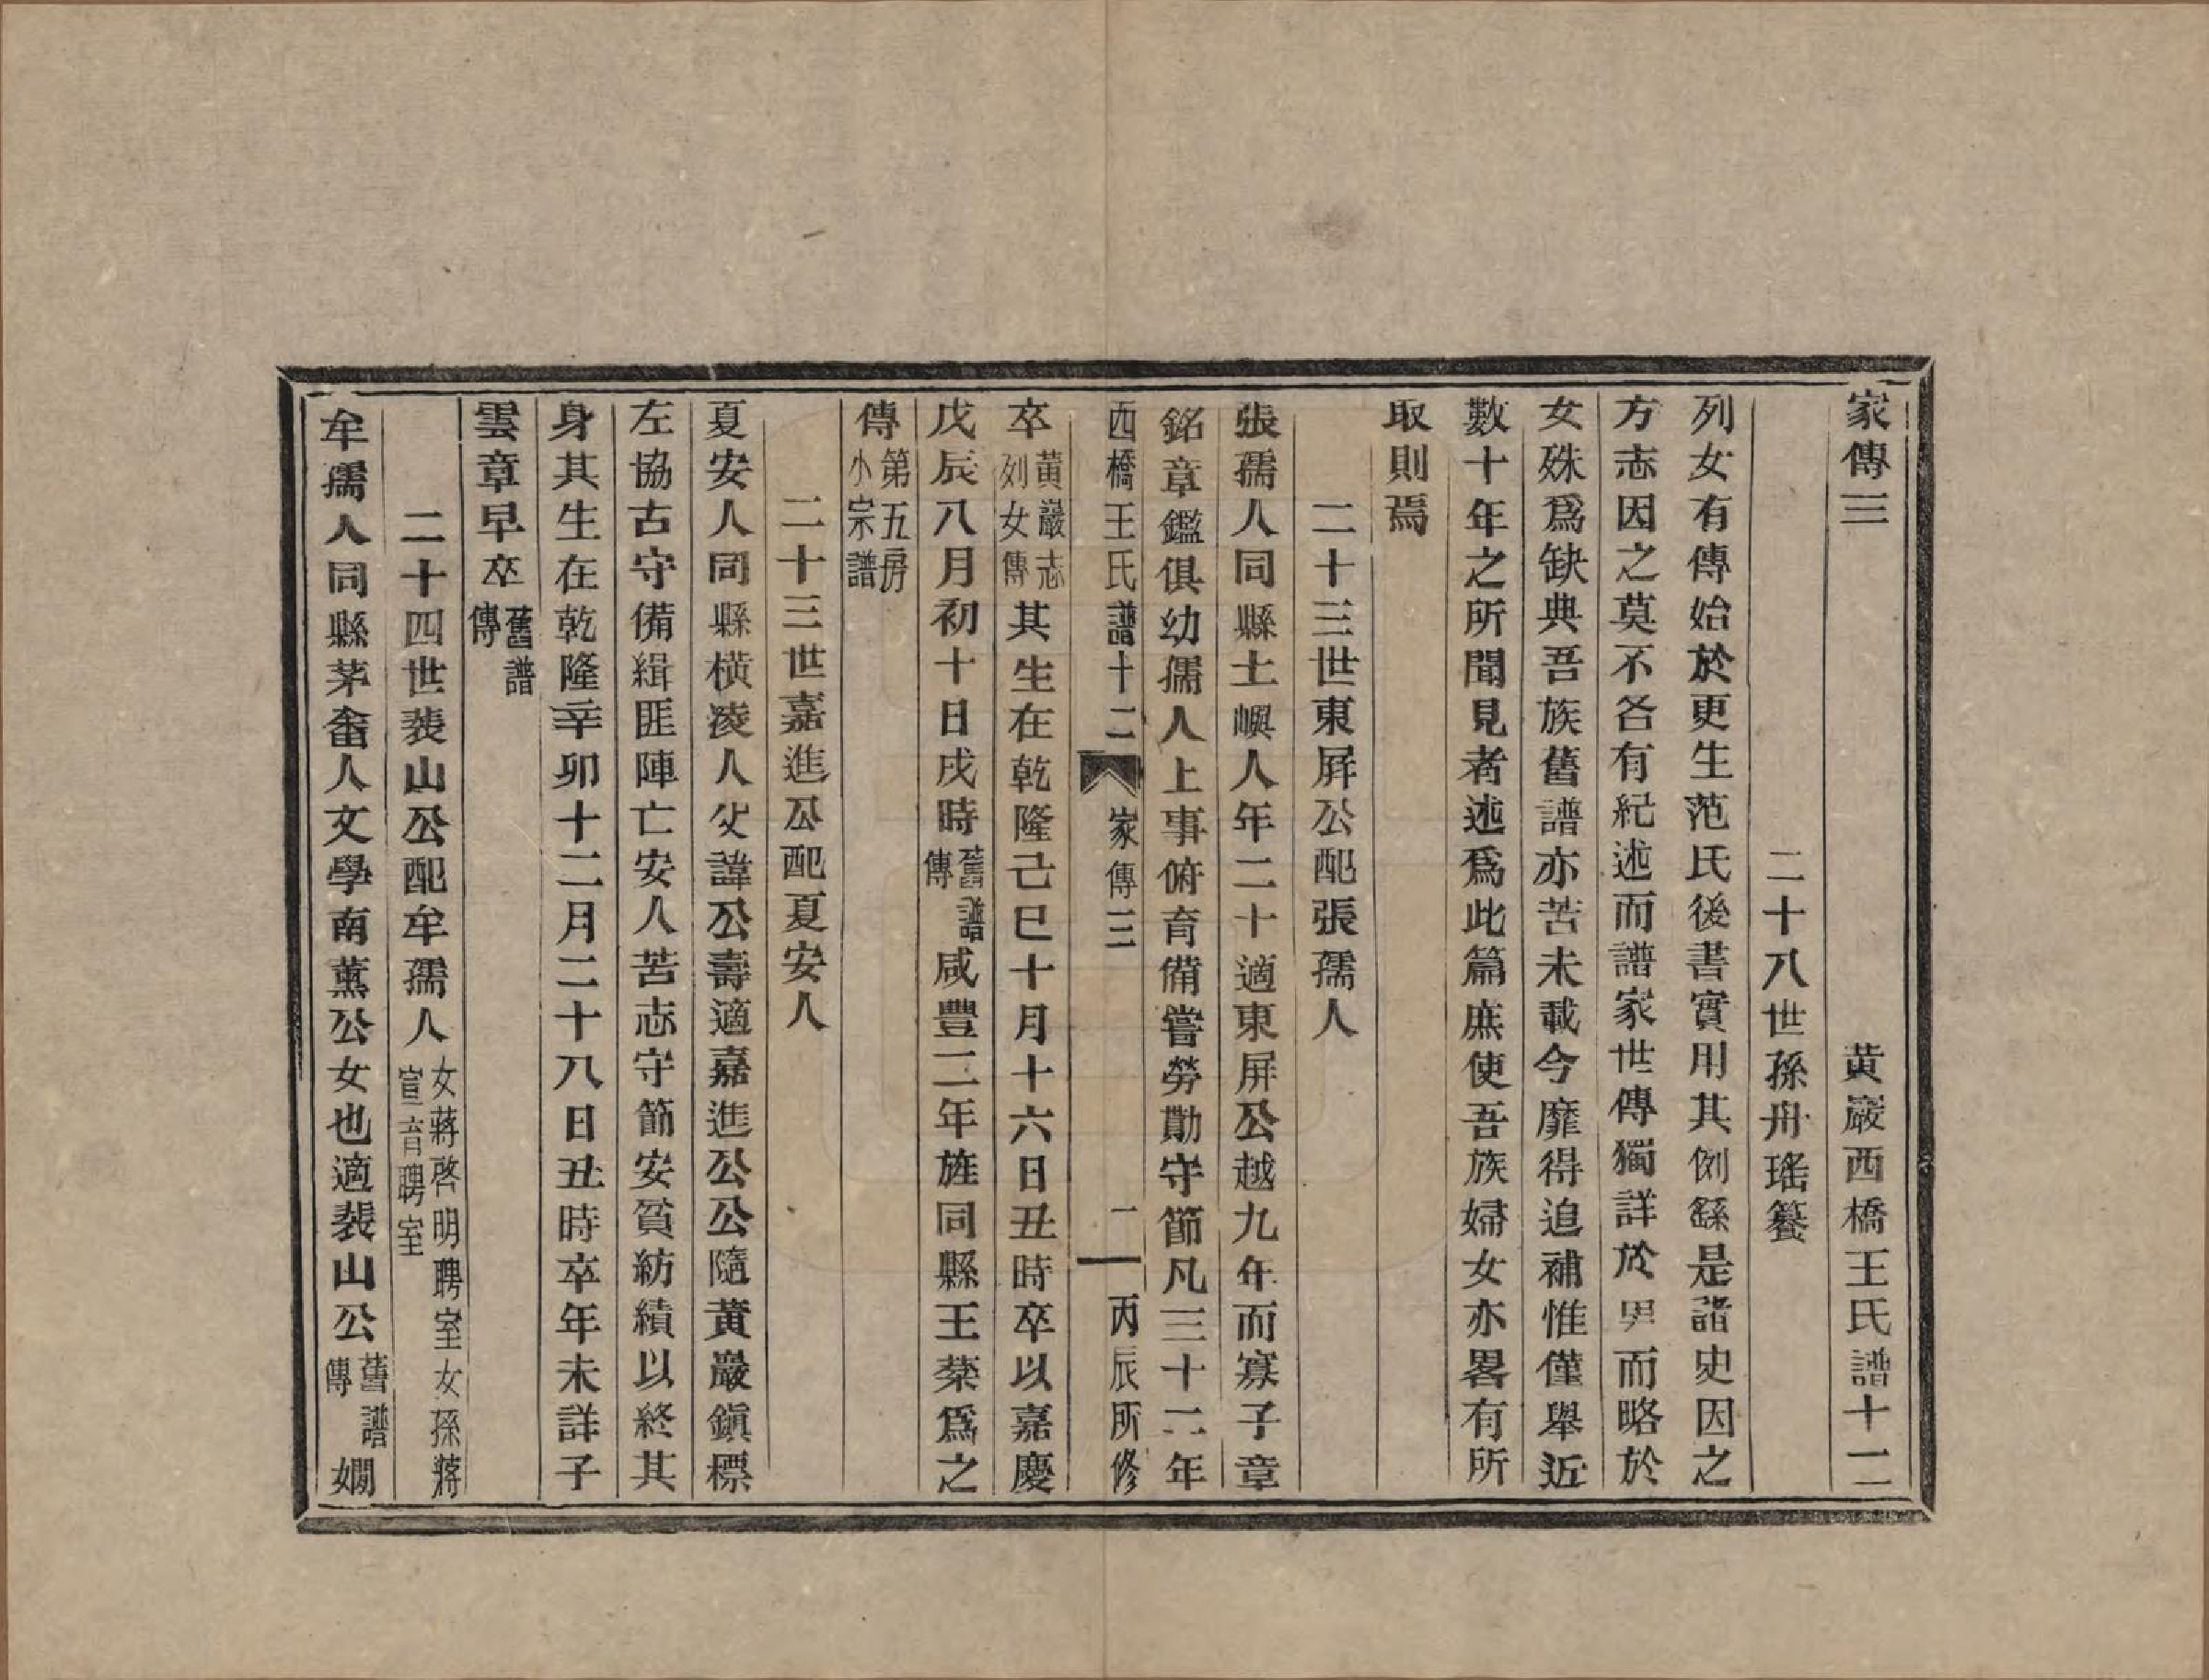 家傳三　黃巖西橋王氏譜十二
二十八世孫舟瑤纂
列女有傳始於更生范氏後書實用其例繇是諸史因之
方志因之莫不各有紀述而譜家世傳獨詳於男而略於
女殊爲缺典吾族舊譜亦苦未載今靡得追補惟僅舉近
數十年之所聞見者述爲此篇庶使吾族婦女亦畧有所
取則焉
二十三世東屛公配張孺人
張孺人同縣土嶼人年二十適東屏公越九年而寡子章
銘章鑑俱幼孺人上事俯育備嘗勞勩守節凡三十二年
西橋王氏譜十二　家傳三　一　丙辰所修
卒黃巖志列女傳其生在乾隆己巳十月十六日丑時卒以嘉慶
戊辰八月初十日戌時舊譜傳咸豐二年旌同縣王棻爲之
傳第五房小宗譜
二十三世嘉進公配夏安人
夏安人同縣橫凌人父諱公壽適嘉進公公隨黃巖鎭標
左協古守備緝匪陣亡安人苦志守節安貧紡績以終其
身其生在乾隆辛卯十二月二十八日丑時卒年未詳子
雲章早卒舊譜傳
二十四世裴山公配牟孺人女蔣啓明聘室女孫蔣宣音聘室
牟孺人同縣茅畬人文學南薰公女也適裴山公舊譜傳嫺